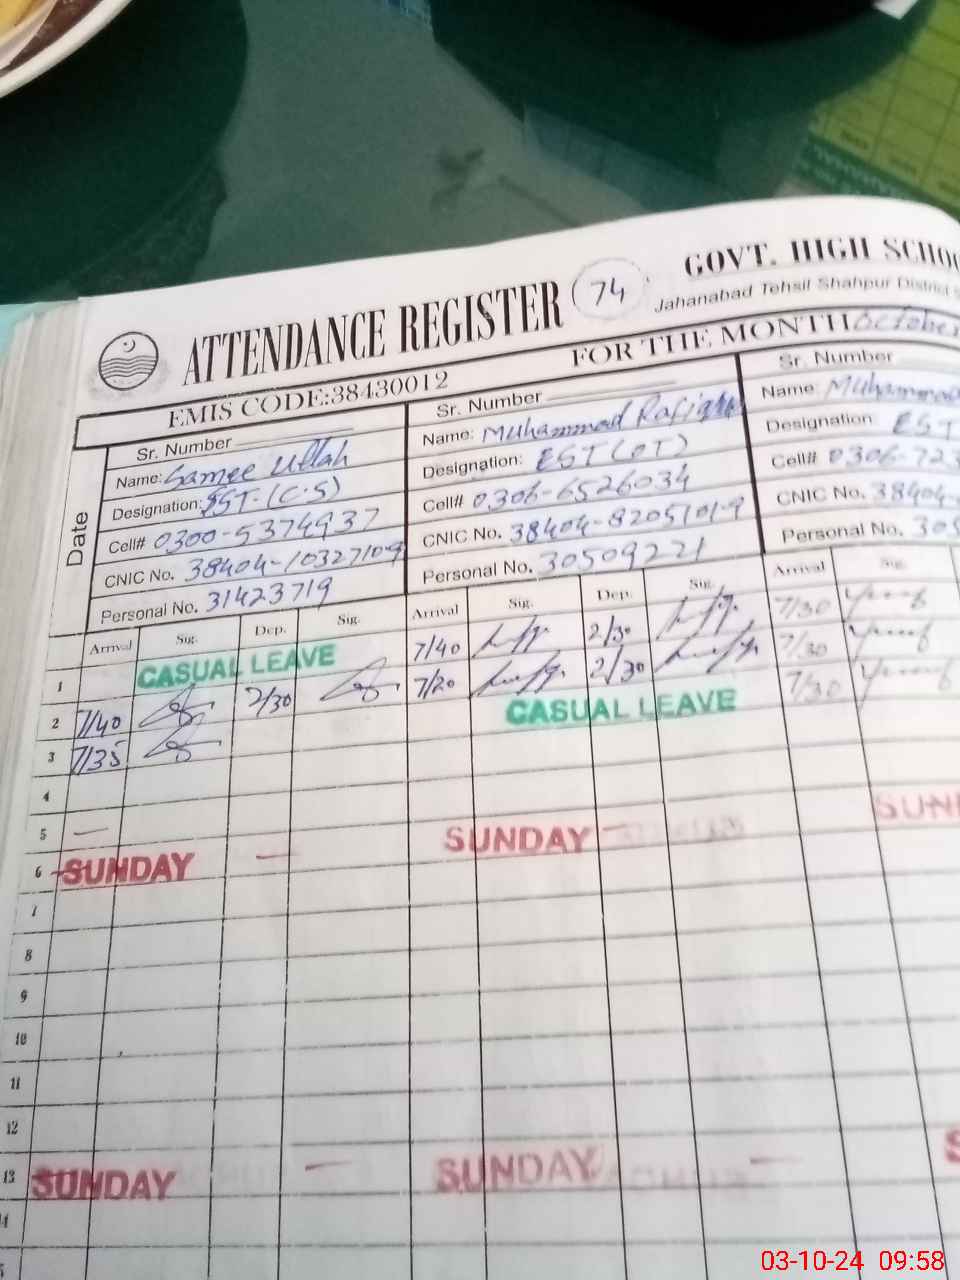 ATTENDANCE REGISTER 74 GOVT. HIGH
Jahanabad Tehsil Shahpur District
EMIS CODE:38430012 FOR THE MONTH October
Date
Sr. Number
Name: Samee Ullah
Designation: SST-(C.S)
Cell# 0300-5374937
CNIC No. 38404-1032710-9
Personal No. 31423719
Arrival Sig. Dep. Sig.
Sr. Number
Name: Muhammad Rafique
Designation: EST (OT)
Cell# 0306-6526034
CNIC No. 38404-8205101-9
Personal No. 30509221
Arrival Sig. Dep. Sig.
Sr. Number
Name: Muhammad
Designation: EST
Cell# 0306-723
CNIC No. 38404-
Personal No. 305
Arrival Sig.
1 CASUAL LEAVE 7/40 2/30 7/30
2 7/40 2/30 7/20 2/30 7/30
3 7/35 CASUAL LEAVE 7/30
4
5
6 SUNDAY SUNDAY SUN
7
8
9
10
11
12
13 SUNDAY SUNDAY S
14
03-10-24 09:58